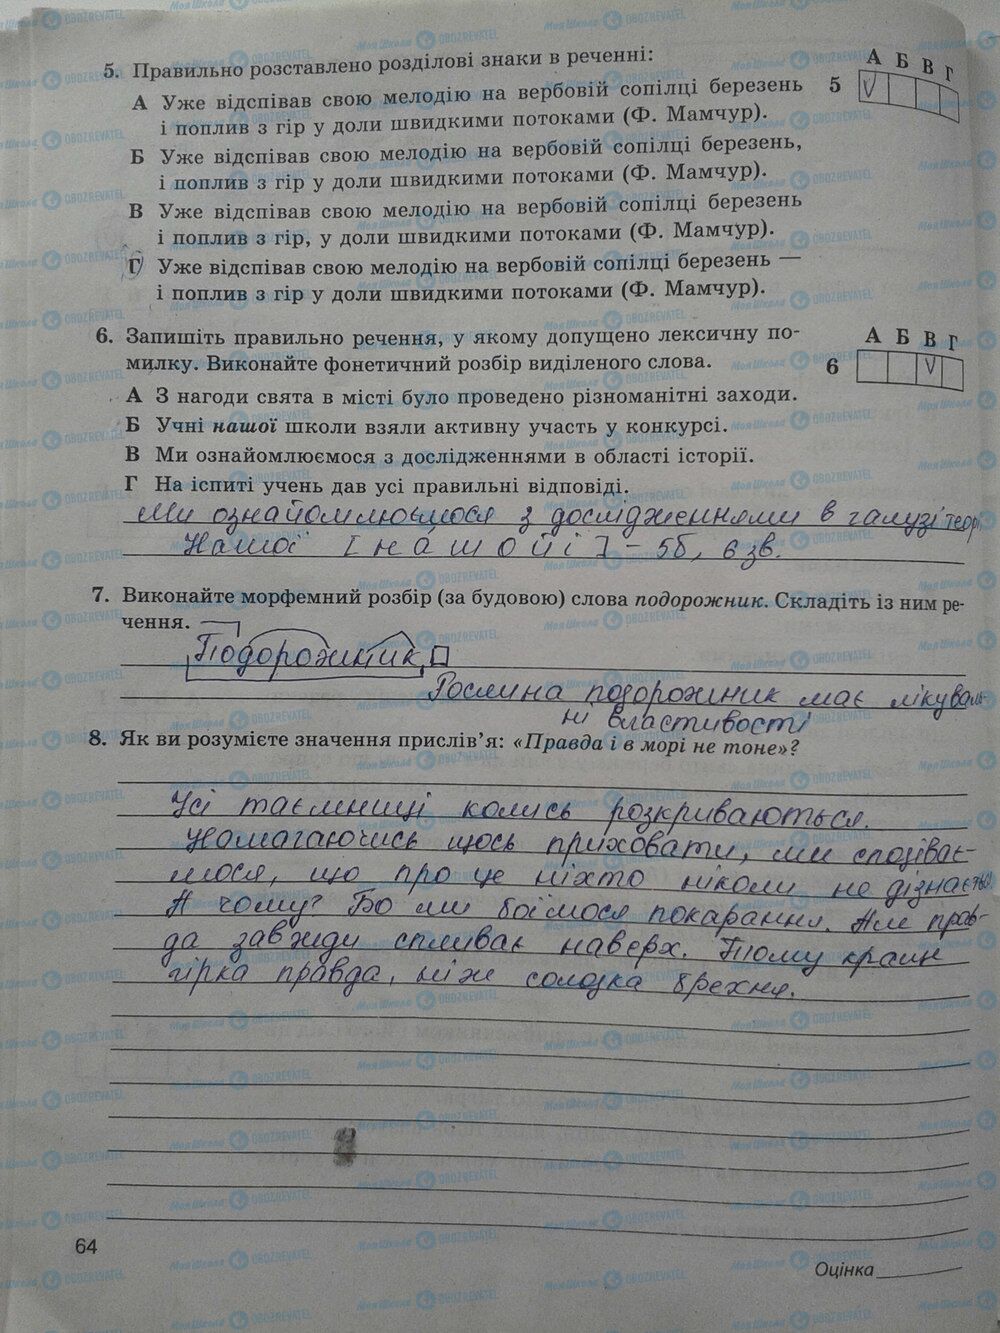 5. Правильно розставлено розділові знаки в реченні:
А Б В Г
А Уже відспівав свою мелодію на вербовій сопілці березень
5 V
і поплив з гір у доли швидкими потоками (Ф. Мамчур).
Б Уже відспівав свою мелодію на вербовій сопілці березень,
і поплив з гір у доли швидкими потоками (Ф. Мамчур).
В Уже відспівав свою мелодію на вербовій сопілці березень
і поплив з гір, у доли швидкими потоками (Ф. Мамчур).
Г Уже відспівав свою мелодію на вербовій сопілці березень —
і поплив з гір у доли швидкими потоками (Ф. Мамчур).
6. Запишіть правильно речення, у якому допущено лексичну по-
А Б В Г
милку. Виконайте фонетичний розбір виділеного слова.
6 V
А З нагоди свята в місті було проведено різноманітні заходи.
Б Учні нашої школи взяли активну участь у конкурсі.
В Ми ознайомлюємося з дослідженнями в області історії.
Г На іспиті учень дав усі правильні відповіді.
Ми ознайомлюємося з дослідженнями в галузі
Нашої [нашойі] – 5б, 6 зв.
7. Виконайте морфемний розбір (за будовою) слова подорожник. Складіть із ним ре-
чення.
Подорожник
Рослина подорожник має лікуваль-
ні властивості
8. Як ви розумієте значення прислів’я: «Правда і в морі не тоне»?
Усі таємниці колись розкриваються.
Намагаючись щось приховати, ми сподіває-
мося, що про це ніхто ніколи не дізнається.
А чому? Бо ми боїмося покарання. Але прав-
да завжди спливає наверх. Тому краще
гірка правда, ніж солодка брехня.
64
Оцінка
МояШкола OBOZREVATEL